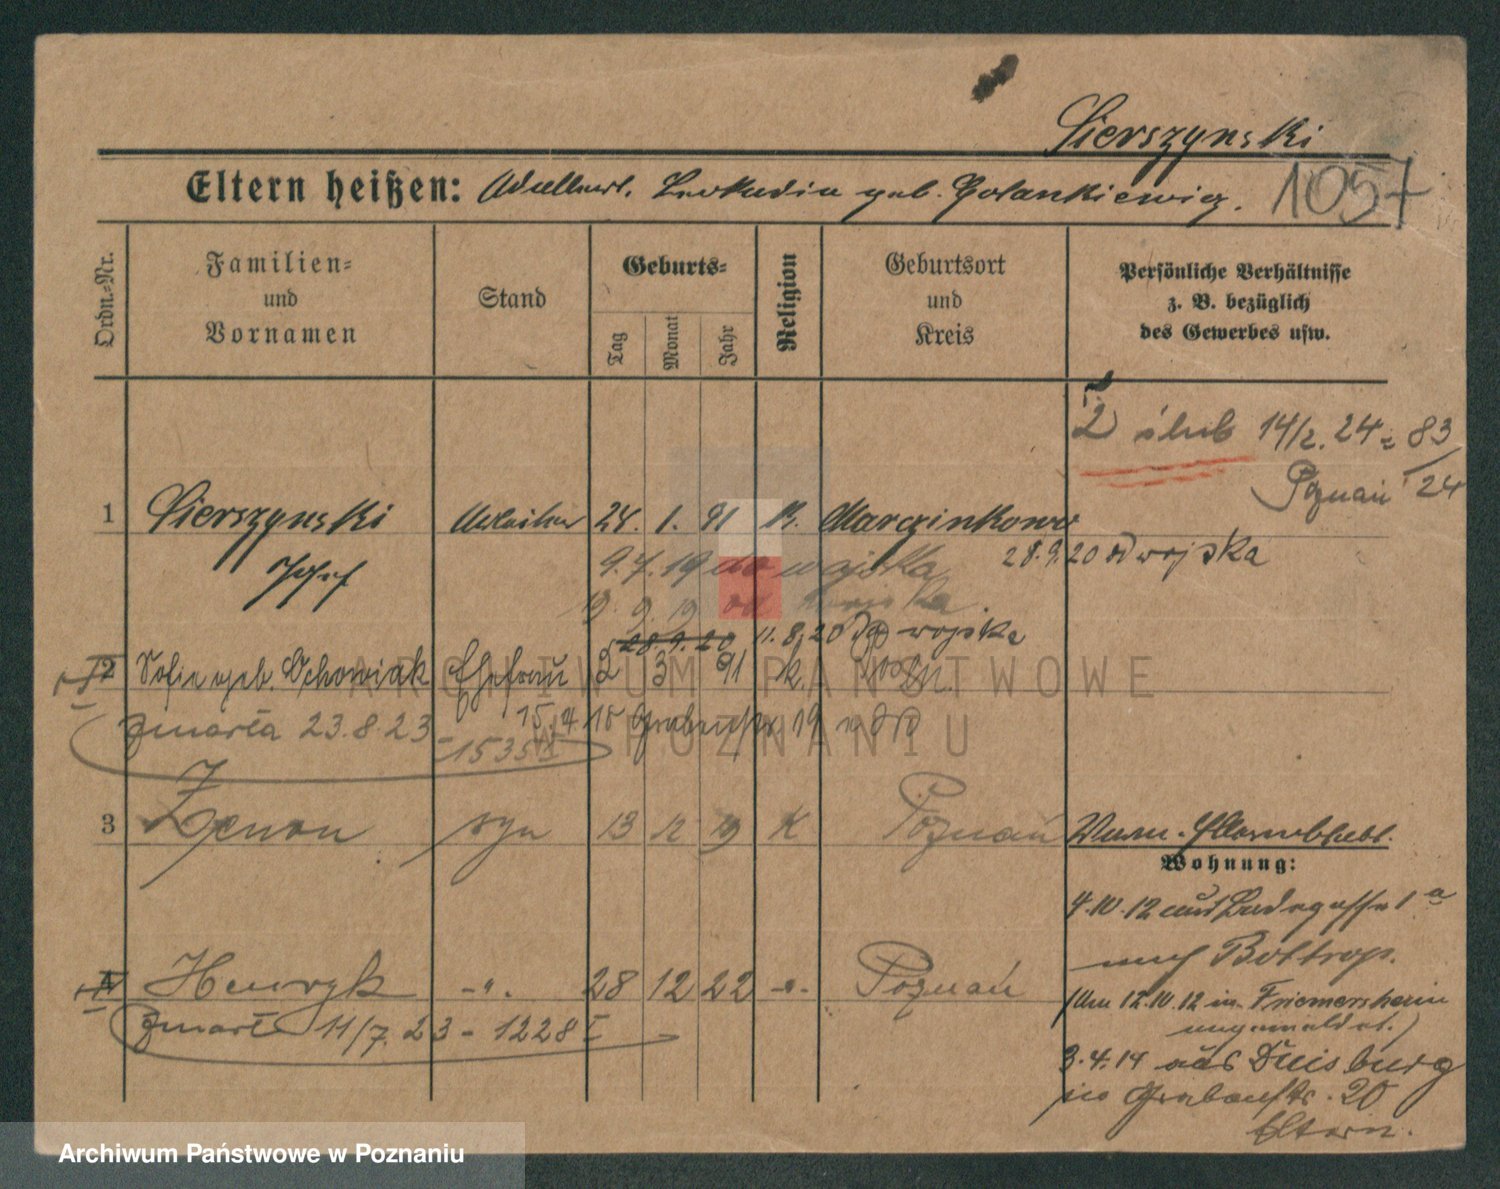 Sierszynski
Eltern heißen: Adalbert. Leokadia geb. Golankiewicz.
1057
Ordn.-Nr.
Familien-
und
Vornamen
Stand
Geburts-
Tag
Monat
Jahr
Religion
Geburtsort
und
Kreis
Persönliche Verhältnisse
z. B. bezüglich
des Gewerbes usw.
2 ślub 14/2. 24 = 83/24
Poznań
1 Sierszynski Arbeiter 24. 1. 91 K. Marzinkowo
Josef
9.7.19 do wojska
28.9.20 od wojska
19. 9. 19 od wojska.
28.9.20 11.8.20 do wojska
2 Sofie geb. Ochowiak Ehefrau 2 3 91 k. Posen.
15.4.15 Grabenstr 19
zmarła 23.8.23 - 1535 I
3 Zenon syn 13 12 19 K Poznań
Wohnung:
4.10.12 aus Badegasse 1a
nach Bottrop.
(Am 12.10.12 in Friemersheim
angemeldet.)
3.4.14 aus Duisburg
in Grabenstr. 20
Eltern.
4 Henryk -"- 28 12 22 -"- Poznań
zmarł 11/7. 23 - 1228 I
ARCHIWUM PAŃSTWOWE
W POZNANIU
Archiwum Państwowe w Poznaniu